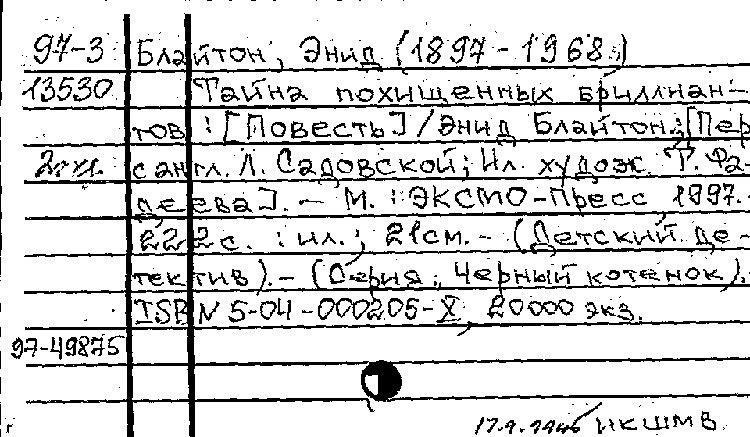 97-3 Блайтон, Энид (1897-1968)
13530 Тайна похищенных бриллиан-
тов : [Повесть] / Энид Блайтон; [Пер
2 экз. с англ. Л. Садовской; Ил. худож. Т. Фа-
деева]. - М. : ЭКСМО-Пресс, 1997.-
222 с. : ил.; 21 см. - (Детский де-
тектив). - (Серия "Черный котенок).
ISBN 5-04-000205-X, 20000 экз.
97-49875
НКШМВ